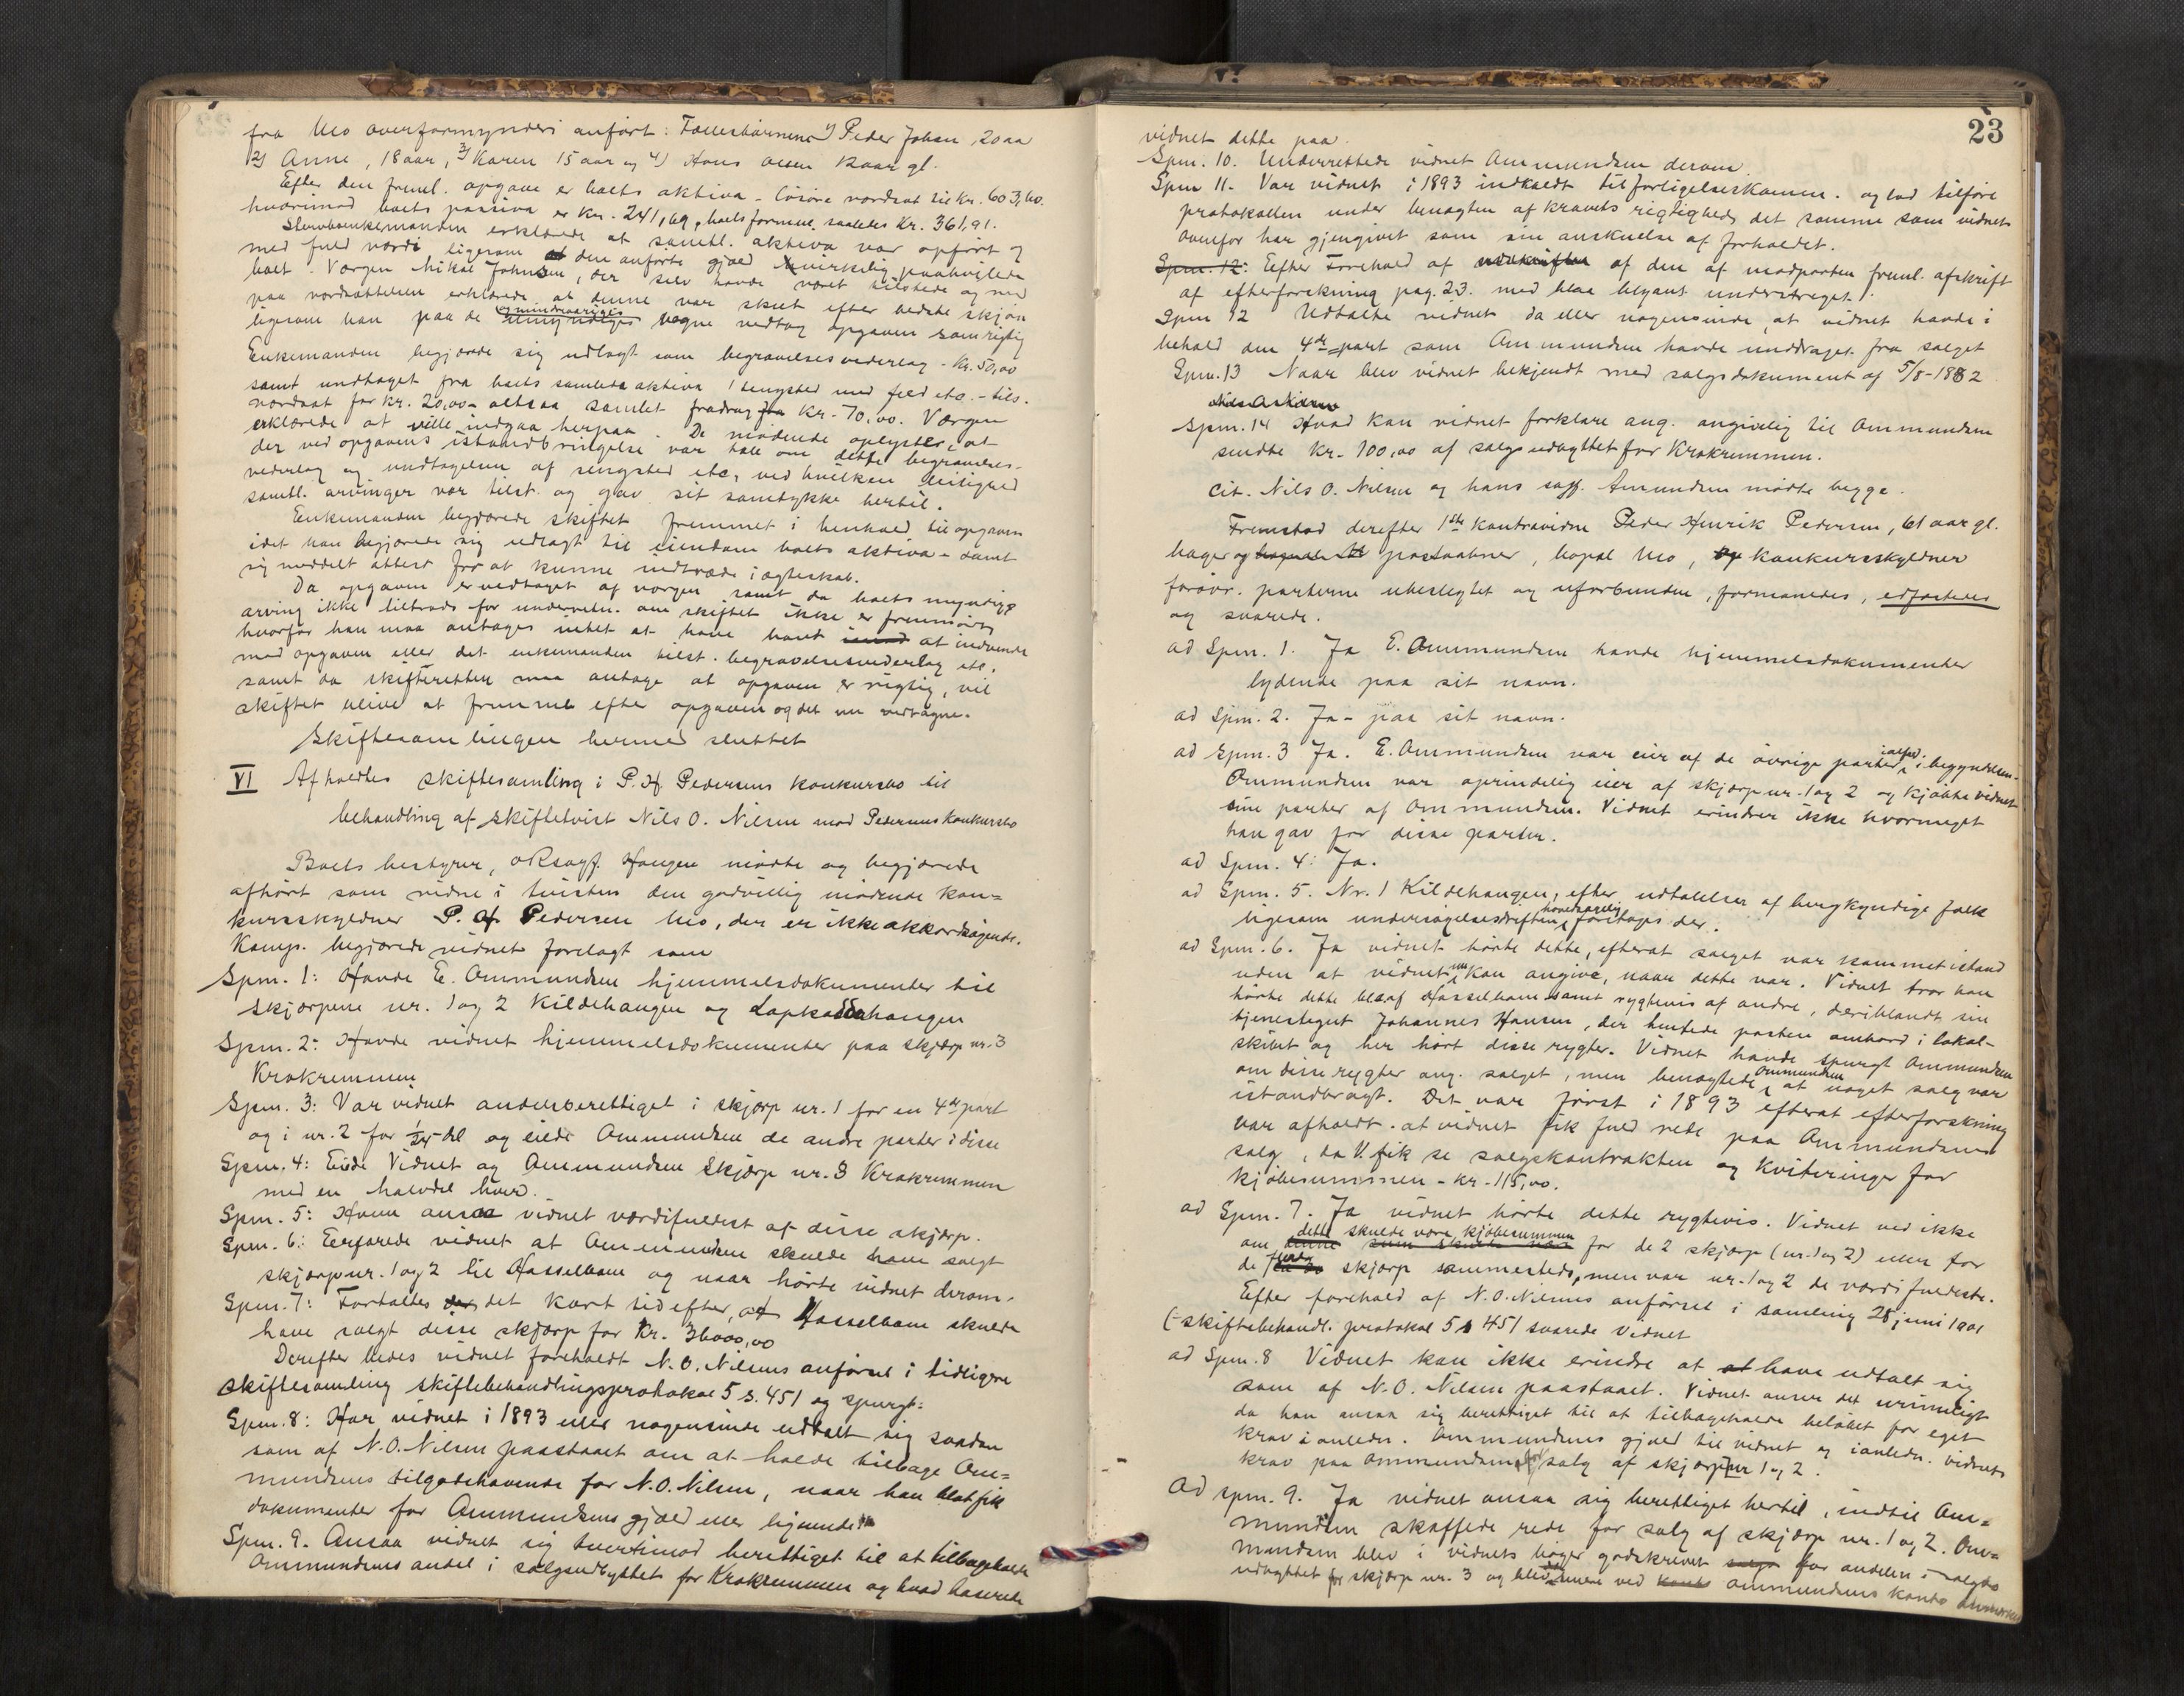 fra Mo overformynderi anført: Fællesbørnene 1) Peder Johan, 20 aa
2) Anne, 18 aar, 3) Karen 15 aar og 4) Hans Olsen 12 aar gl.
Efter den freml. opgave er boets aktiva - løsøre værdsat til kr. 603,60.
hvorimod boets passiva er kr. 241,69, boets formue saaledes kr. 361,91.
Stervboenkemanden erklærede at samtl. aktiva var opført og
med fuld værdi ligesom den anførte gjæld virkelig paahvilede
boet. Værgen Mikal Johnsen, der selv havde været tilstede og med
paa værdsættelsen erklærede at denne var skeet efter bedste skjøn
ligesom han paa de umyndiges vegne vedtog opgaven som rigtig
Enkemanden begjærede sig udlagt som begravelsesvederlag - kr. 50,00
samt undtaget fra boets samlede aktiva 1 sengsted med feld etc. - tils.
værdsat for kr. 20,00 - altsaa samlet fradrag kr. 70,00. Værgen
erklærede at ville indgaa herpaa. De mødende oplyste, at
der ved opgavens istandbringelse var tale om dette begravelses-
vederlag og undtagelsen af sengsted etc, ved hvilken leilighed
samtl. arvinger var tilst. og gav sit samtykke hertil.
Enkemanden begjærede skiftet fremmet i henhold til opgaven
idet han begjærede sig udlagt til eiendom boets aktiva - samt
sig meddelt attest for at kunne indtræde i ægteskab.
Da opgaven er vedtaget af værgen samt da boets myndige
arving ikke tiltrods for underretn. om skiftet ikke er fremmødt
hvorfor han maa antages intet at have havt imod at indvende
mod opgaven eller det enkemanden tilst. begravelsesvederlag etc.
samt da skifteretten maa antage at opgaven er rigtig, vil
skiftet blive at fremme efter opgaven og det nu vedtagne.
Skiftesamlingen hermed sluttet
VI Afholdtes skiftesamling i P. H. Pedersens konkursbo til
behandling af skiftetvist Nils O. Nilsen mod Pedersens konkursbo
Boets bestyrer, oRsagf. Haugen mødte og begjærede
afhørt som vidne i tvisten den godvillig mødende kon=
kursskyldner P. H. Pedersen Mo, der er ikke akkordsøgende.
Komp. begjærede vidnet forelagt som
Spm. 1: Havde E. Ammundsen hjemmelsdokumenter til
skjærpene nr. 1 og 2 Kildehaugen og Lapkoddehaugen
Spm. 2: Havde vidnet hjemmelsdokumenter paa skjærp nr. 3
Krokremmen
Spm. 3: Var vidnet andelsberettiget i skjærp nr. 1 for en 4de part
og i nr. 2 for 1/24 del og eiede Ammundsen de andre parter i disse
Spm. 4: Eiede Vidnet og Ammundsen Skjærp nr. 3 Krokremmen
med en halvdel hver.
Spm. 5: Hvem ansaa vidnet værdifuldest af disse skjærp.
Spm. 6: Erfarede vidnet at Ammundsen skulde have solgt
skjærp nr. 1 og 2 til Hasselbom og naar hørte vidnet derom.
Spm. 7: Fortaltes det kort tid efter, at Hasselbom skulde
have solgt disse skjærp for kr. 36000,00
Derefter bedes vidnet foreholdt N. O. Nilsens anførsel i tidligere
skiftesamling skiftebehandlingsprotokol 5 s. 451 og spurgt:
Spm. 8: Har vidnet i 1893 eller nogensinde udtalt sig saadan
som af N. O. Nilsen paastaaet om at holde tilbage Am=
mundsens tilgodehavende for N. O. Nilsen, naar han blot fik
dokumenter for Ammundsens gjæld eller lignende
Spm. 9. Ansaa vidnet sig tvertimod berettiget til at tilbageholde
Ammundsens andel i salgsudbyttet for Krokremmen og hvad baserede
23
vidnet dette paa.
Spm. 10. Underrettede vidnet Ammundsen derom
Spm 11. Var vidnet i 1893 indkaldt til forligelseskomm. og lod tilføre
protokollen under benægten af kravets rigtighed, det samme som vidnet
ovenfor har gjengivet som sin anskuelse af forholdet.
Spm. 12: Efter Forehold af af den af modparten freml. afskrift
af efterforskning pag. 23. med blaa blyant understreget.
Spm 12 Udtalte vidnet da eller nogensinde, at vidnet havde i
behold den 4de part som Ammundsen havde unddraget fra salget
Spm. 13 Naar blev vidnet bekjendt med salgsdokument af 5/8 - 1882
Spm. 14 Hvad kan vidnet forklare ang. angivelig til Ammundsen
sendte kr. 100,00 af salgsudbyttet for Krokremmen.
Cit. Nils O. Nilsen og hans sagf. Amundsen mødte begge.
Fremstod derefter 1ste kontravidne Peder Henrik Pedersen, 61 aar gl.
bager og postaabner, bopæl Mo, konkursskyldner
forøvr. parterne ubeslegtet og uforbunden, formanedes, edfæstedes
og svarede.
ad Spm. 1. Ja E. Ammundsen havde hjemmelsdokumenter
lydende paa sit navn.
ad Spm. 2. Ja - paa sit navn.
ad Spm. 3 Ja. E. Ammundsen var eier af de øvrige parter ialfald i begyndelsen.
Ammundsen var oprindelig eier af skjærp nr. 1 og 2 og kjøbte vidnet
sine parter af Ammundsen. Vidnet erindrer ikke hvormeget
han gav for disse parter.
ad Spm. 4: Ja.
ad Spm. 5. Nr. 1 Kildehaugen, efter udtalelser af bergkyndige folk
ligesom undersøgelsesdriften hovedsagelig foretoges der.
ad Spm. 6. Ja vidnet hørte dette, efterat salget var kommet istand
uden at vidnet nu kan angive, naar dette var. Vidnet tror han
hørte dette bl.a. af Hasselbom samt rygtevis af andre, deriblandt sin
tjenestegut Johannes Hansen, der hentede posten ombord i lokal-
skibet og her hørt disse rygter. Vidnet havde spurgt Ammundsen
om disse rygter ang. salget, men benægtede Ammundsen at noget salg var
istandbragt. Det var først i 1893 efterat efterforskning
var afholdt at vidnet fik fuld rede paa Ammundsens
salg, da V. fik se salgskontrakten og kviteringer for
kjøbesummen - kr. 115,00.
ad Spm. 7. Ja vidnet hørte dette rygtevis. Vidnet ved ikke
om dette skulde være kjøbesummen for de 2 skjærp (nr. 1 og 2) eller for
de flere skjærp sammesteds, men var nr. 1 og 2 de værdifuldeste.
Efter forehold af N. O. Nilsens anførsel i samling 28 juni 1901
(- skiftebehandl. protokol 5 s 451 svarede Vidnet
ad Spm. 8 Vidnet kan ikke erindre at have udtalt sig
som af N. O. Nilsen paastaaet. Vidnet anser det urimeligt
da han ansaa sig berettiget til at tilbageholde beløbet for eget
krav i anledn. Ammundsens gjæld til vidnet og ianledn. vidnets
krav paa Ammundsen for salg af skjærp nr 1 og 2.
Ad spm. 9. Ja vidnet ansaa sig berettiget hertil, indtil Am=
mundsen skaffede rede for salg af skjærp nr. 1 og 2. Am=
mundsen blev i vidnets bøger godskrevet for andelen i salgs
udbyttet for skjærp nr. 3 og blev denne ved Ammundsens konto